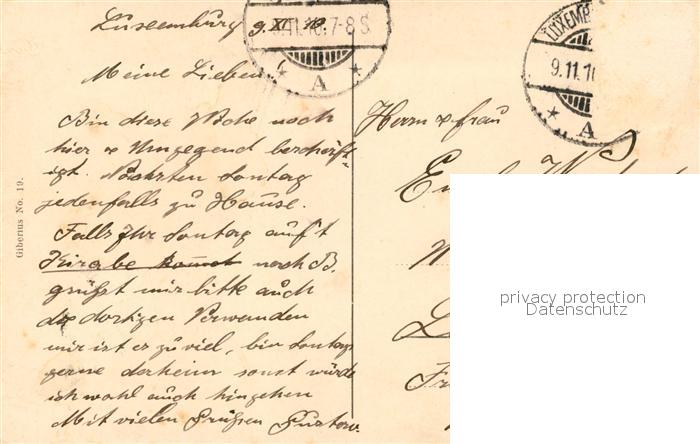 Luxemburg 9. XI. 10.
9.11.10.7-8 S
A
LUXEMB
9.11.10
A
Meine Lieben
Bin diese Woche noch
hier & Umgegend beschäft-
igt. Nächsten Sontag
jedenfalls zu Hause.
Falls Ihr Sontag auf't
Kirabe kommt nach B.
grüßt mir bitte auch
die dortigen Verwanden
mir ist es zu viel, bin Sontags
gerne derheim sonst würde
ich wohl auch hingehen
Mit vielen Grüßen Gustav.
Herrn & Frau
Giberius No. 19.
privacy protection
Datenschutz